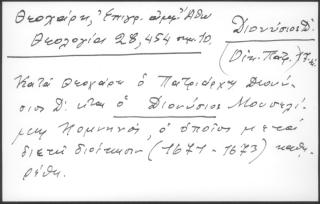 Θεοχάρη, Ἐπιγρ. Διονύσιος Δ'.
Θεολογία 28, 454 σημ. 10. (Οἰκ. Πατρ.)
Κατὰ Θεοχάρη ὁ Πατριάρχης Διονύ-
σιος Δ' εἶναι ὁ Διονύσιος Μουσελί-
μης Κομνηνός, ὁ ὁποῖος μετὰ
διετῆ διοίκησιν (1671 - 1673) καθῃ-
ρέθη.